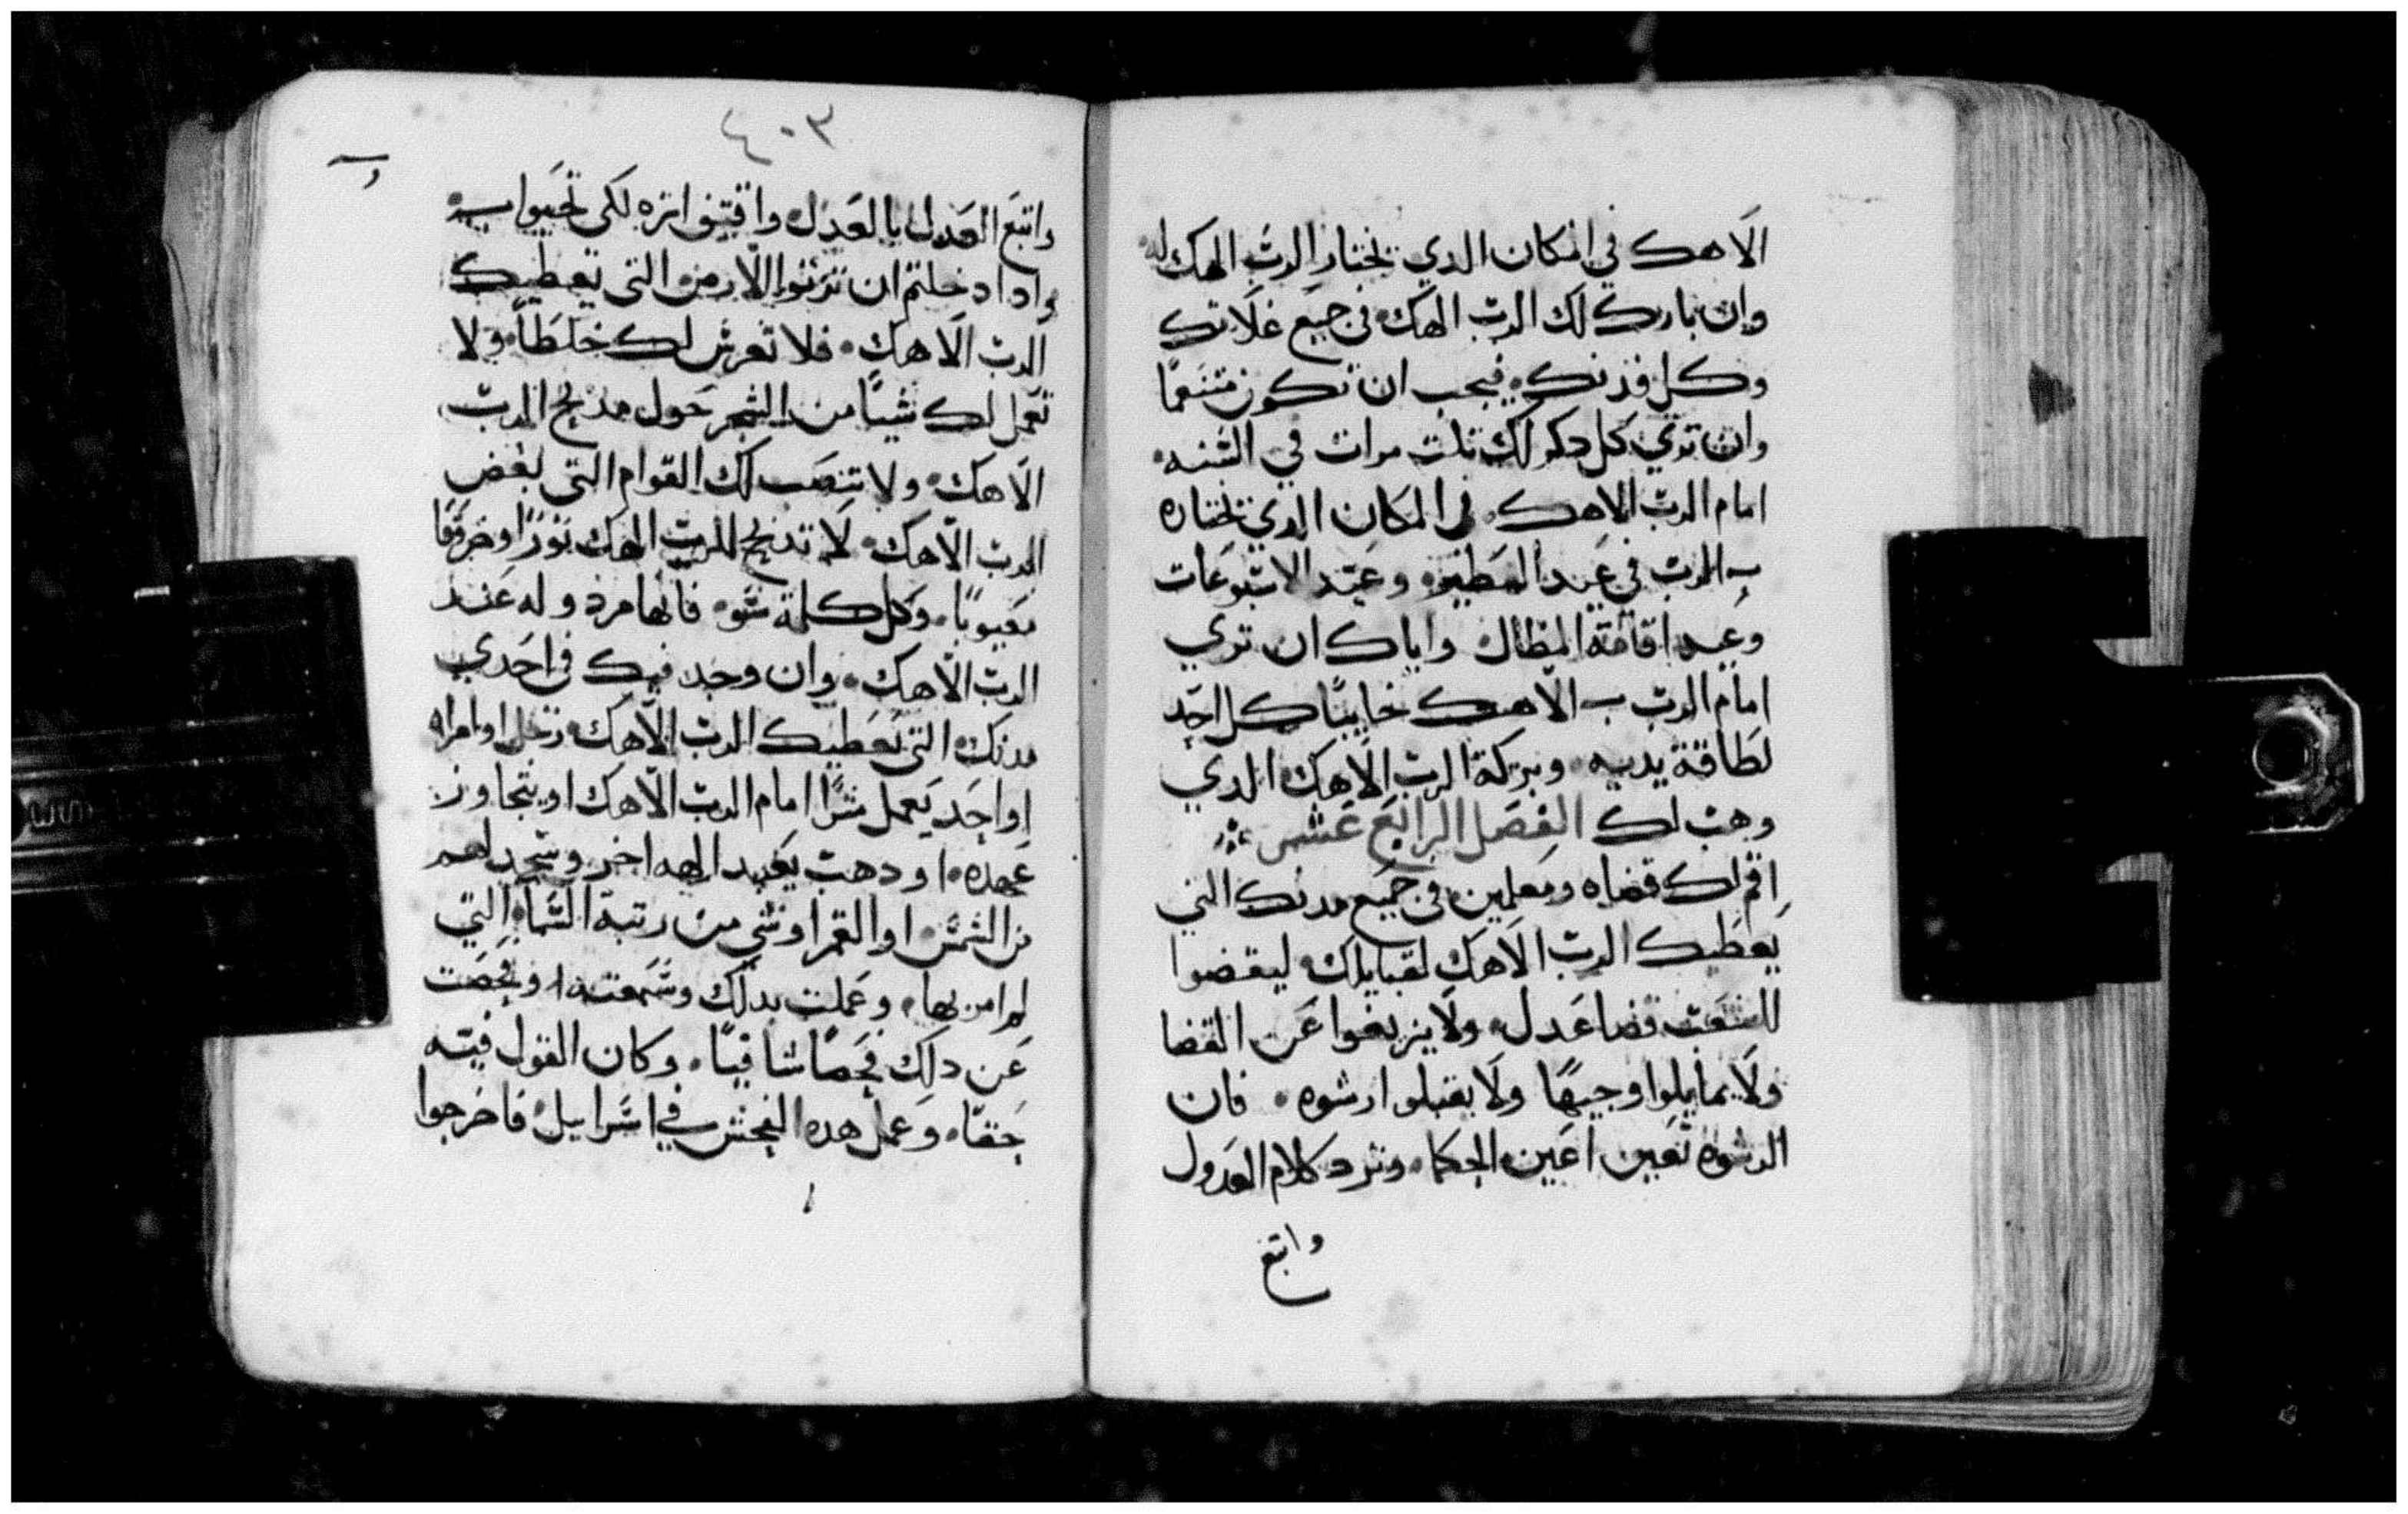 الاهك في المكان الدي يختار الرب الهك له
وان بارك لك الرب الهك في جميع غلاتك
وكل قدنك فيجب ان تكون متنعما
وان تري كل دكر لك تلت مرات في السنه
امام الرب الاهك في المكان الدي يختاره
به الرب في عيد الفطير وعيد الاسبوعات
وعيد اقامة المظال واياك ان تري
امام الرب الاهك خايبا كل احد
لطاقة يديه وبركة الرب الاهك الدي
وهب لك الفصل الرابع عشر
اقم لك قضاه ومعلمين في جميع مدنك التي
يعطيك الرب الاهك لقبايلك ليقضوا
للشعب قضا عدل ولا يزيغوا عن القضا
ولا يمايلوا وجيها ولا يقبلوا رشوه فان
الرشوه تعمي اعين الحكما وترد كلام العدول
واتبع
٤٠٣
واتبع العدل بالعدل واقتفي اتره لكي تحيوا به
وادا دخلتم ان ترتوا الارض التي يعطيك
الرب الاهك فلا تغرس لك خلطا ولا
تعمل لك شيا من الشجر حول مدبح الرب
الاهك ولا تنصب لك القوام التي لبغض
الرب الاهك لا تدبح للرب الهك تورا وخروفا
معيوبا وكل كلمة سو فانها مردوله عند
الرب الاهك وان وجد فيك في احدي
مدنك التي يعطيك الرب الاهك رجل او امراه
او احد يعمل شرا امام الرب الاهك او يتجاوز
عهده او دهب يعبد الهه اخر وسجد لهم
من الشمس او القمر او شي من رتبة السماء التي
لم امر بها وعملت بدلك وسمعته وفحصت
عن دلك فحصا شافيا وكان القول فيه
حقا وعمل هده الفحش في اسراييل فاخرجوا